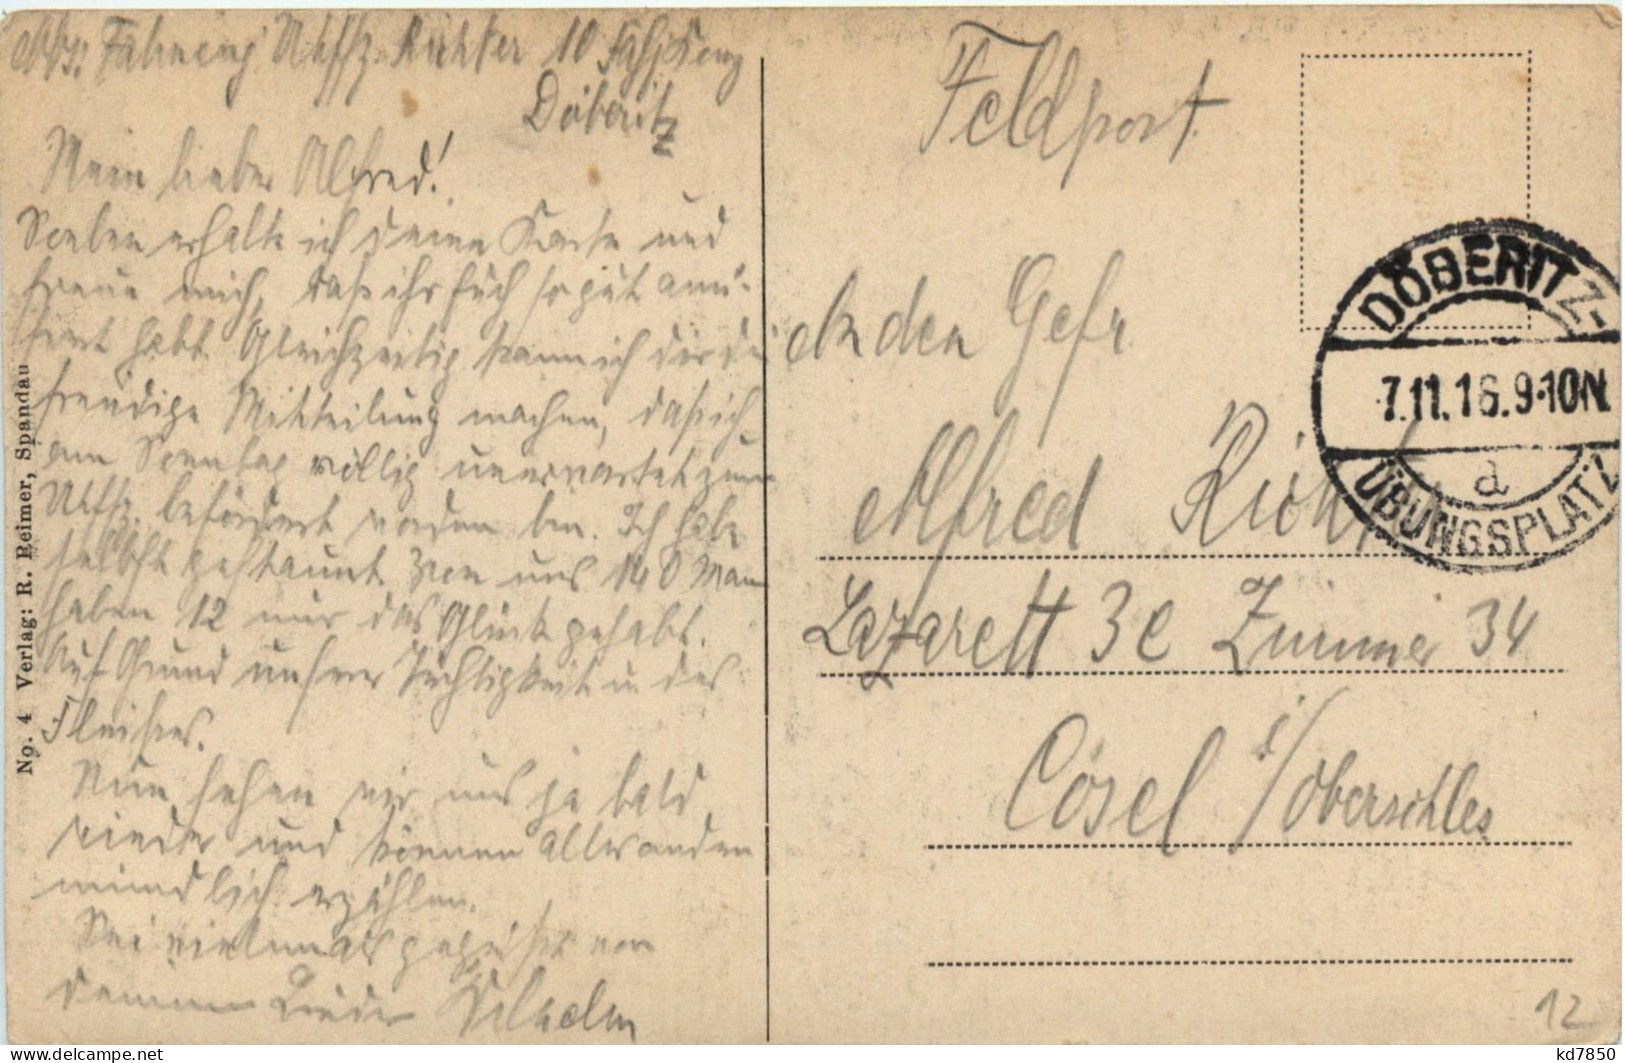 Abs: Fähnrich Uffz. Richter 10
Döberitz
Mein lieber Alfred!
Soeben erhalte ich deine Karte und
freue mich, daß ihr Euch so gut amü-
siert habt. Gleichzeitig kann ich dir die
freudige Mitteilung machen, daß ich
am Sonntag völlig unerwartet zum
Uffz. befördert worden bin. Ich habe
selbst gestaunt. Von uns 140 Mann
haben 12 nur das Glück gehabt.
Auf Grund unserer Tüchtigkeit u des
Fleißes.
Nun sehen wir uns ja bald
wieder und können Alles andere
mündlich erzählen.
Sei vielmals gegrüßt von
deinem Bruder Wilhelm
No. 4 Verlag: R. Reimer, Spandau
Feldpost
An den Gefr.
Alfred Richter
Lazarett 3e Zimmer 34
Cosel i/Oberschles
DÖBERITZ-
7.11.16.9-10N.
a
ÜBUNGSPLATZ
12
delcampe.net
kd7850